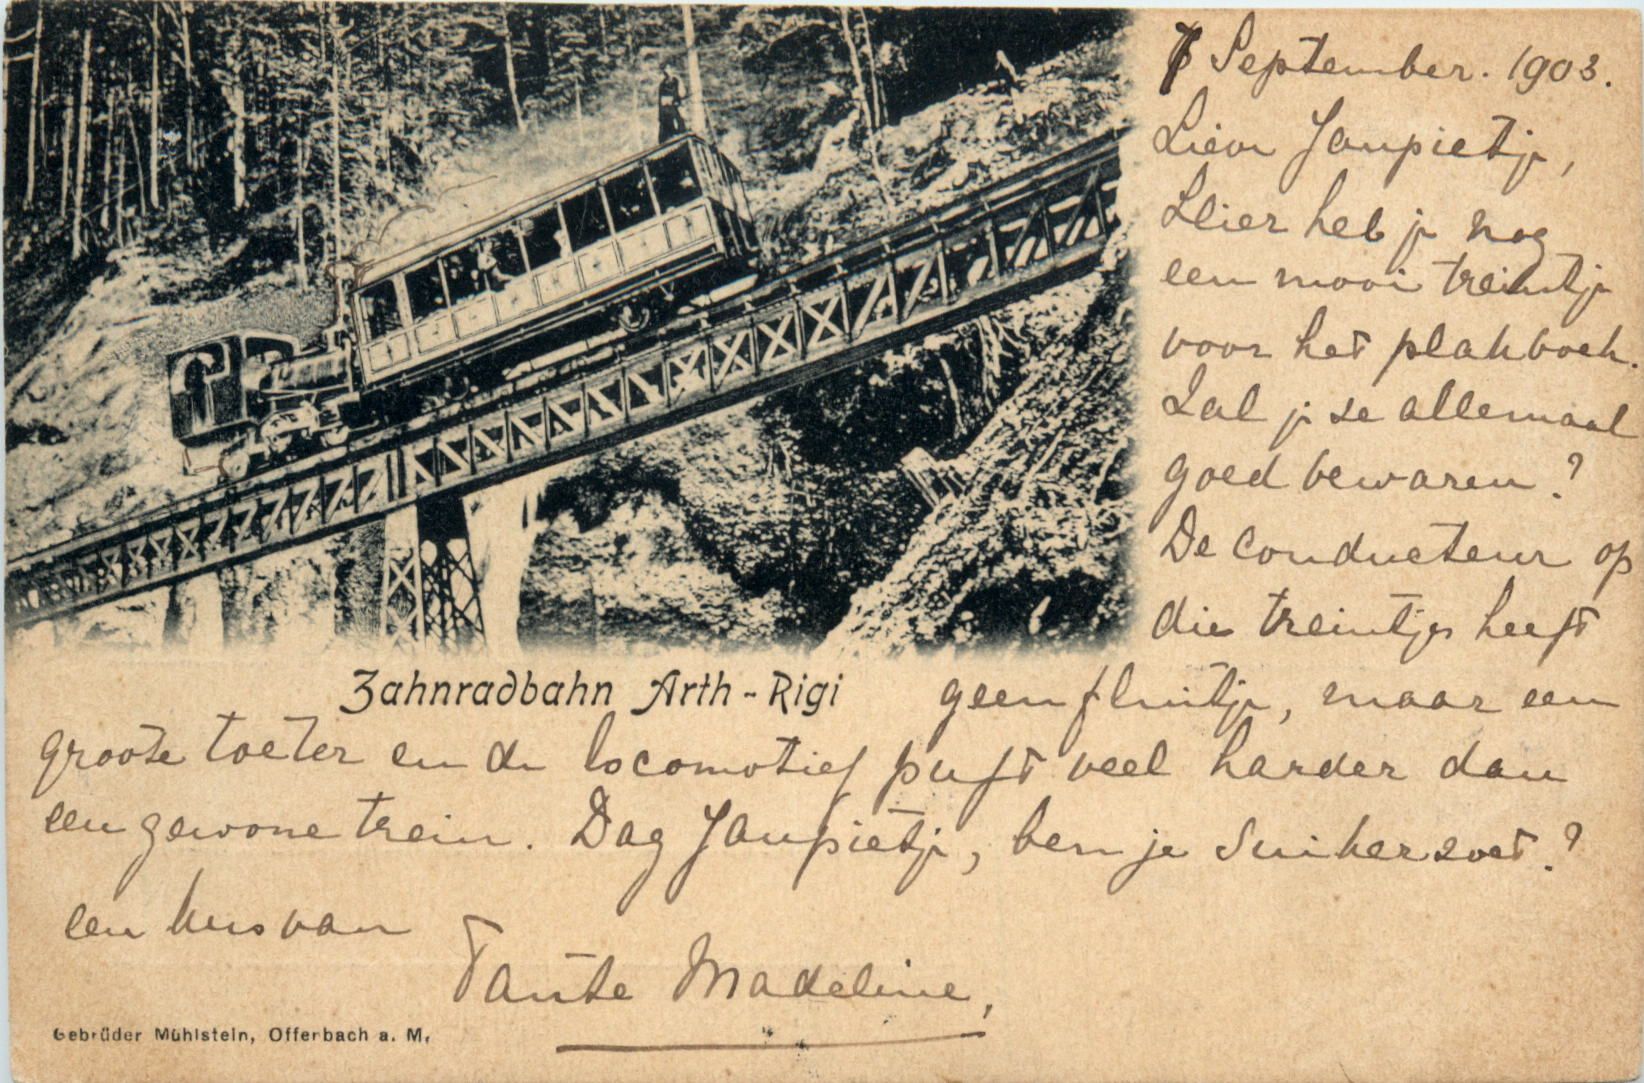 7 September. 1903.
Lieve Jaupietje,
Hier heb je nog
een mooi treintje
voor het plakboek.
Zal je ze allemaal
goed bewaren?
De conducteur op
die treintjes heeft
geen fluitje, maar een
groote toeter en de locomotief puft veel harder dan
een gewone trein. Dag Jaupietje, ben je suikerzoet?
een kus van
Tante Madeline,
Zahnradbahn Arth-Rigi
Gebrüder Mühlstein, Offenbach a. M.